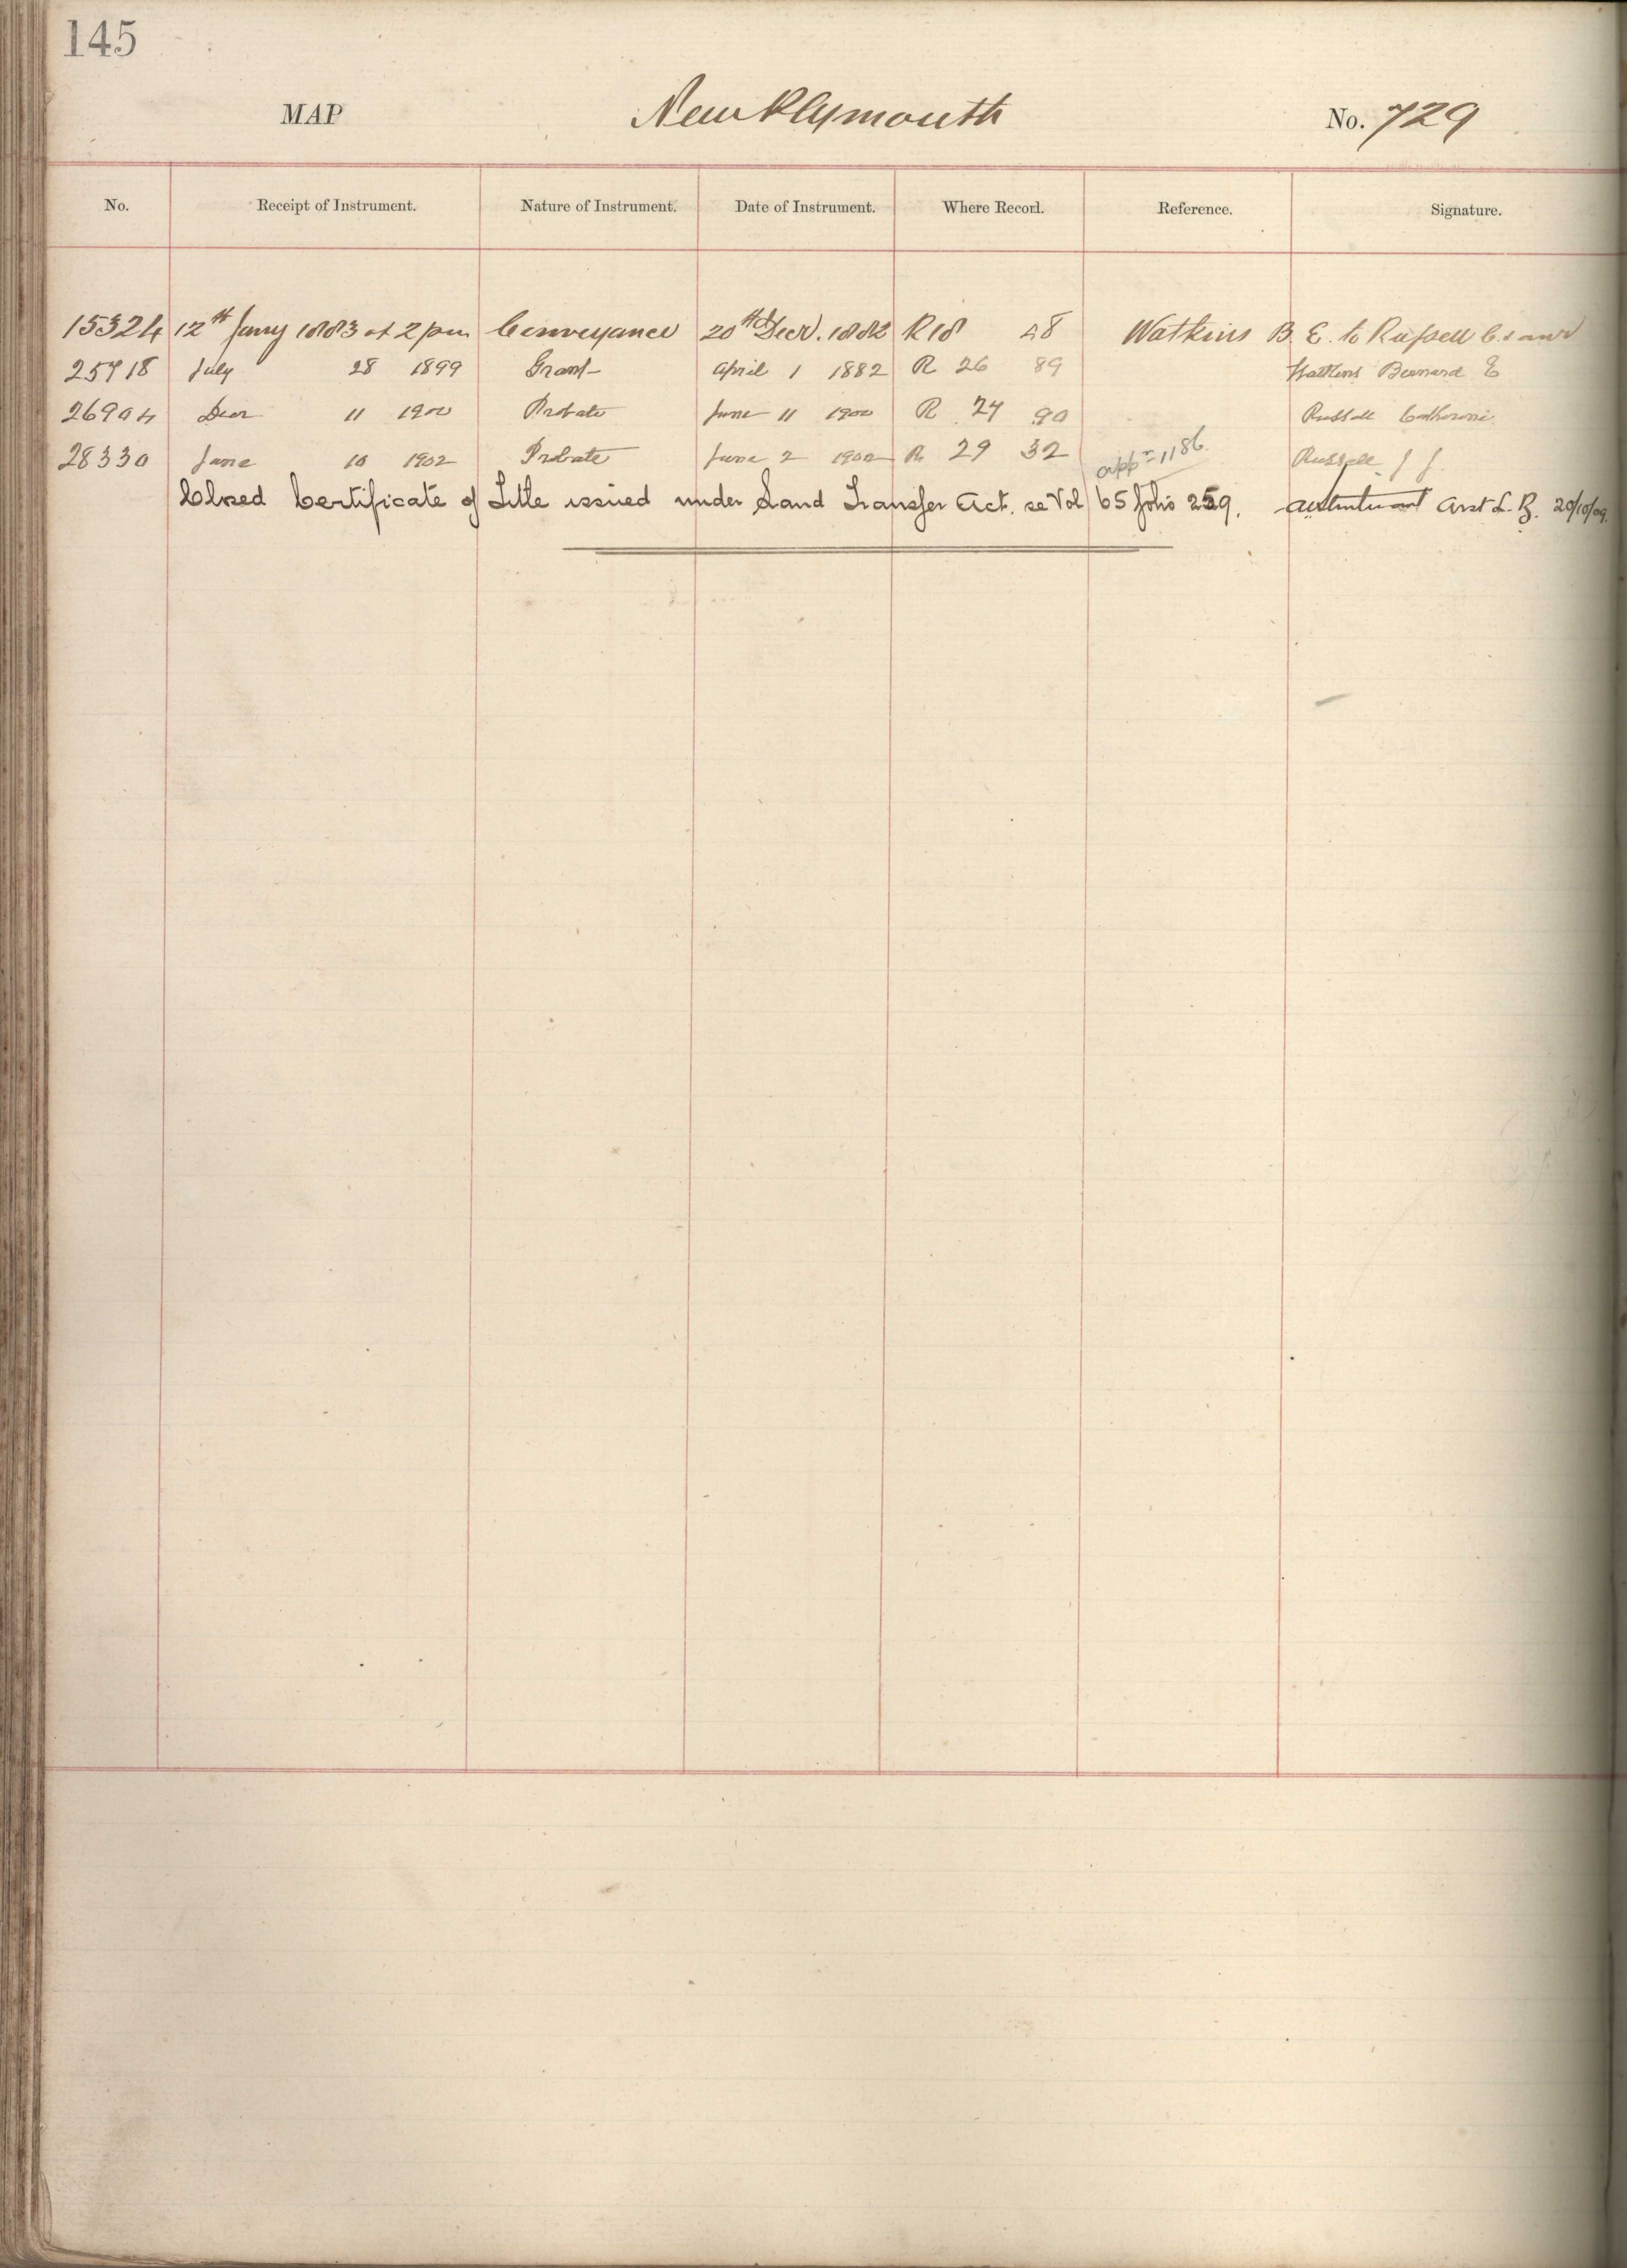 145
MAP New Plymouth No. 729
No. Receipt of Instrument. Nature of Instrument. Date of Instrument. Where Record. Reference. Signature.
15324 12th Jany 1883 at 2 pm Conveyance 20th Decr. 1882 R 18 28 Watkins B. E. to Russell C.
25718 July 28 1899 Grant April 1 1882 R 26 89 Watkins Bernard E
26904 Decr 11 1900 Probate June 11 1900 R 24 90 Russell Catherine
28330 June 10 1902 Probate June 2 1902 R 29 32 Russell J J.
appn 1186.
Closed Certificate of Title issued under Land Transfer Act. see Vol 65 folio 259. Asst L. R. 20/10/09.